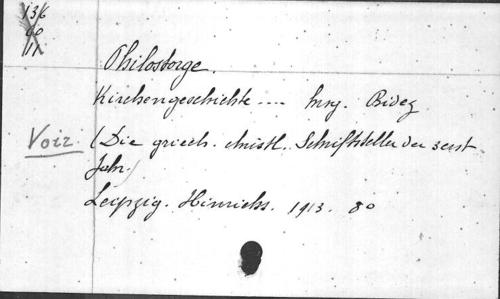 136
60
11
Philostorge.
Kirchengeschichte .... hrsg. Bidez
Voir
(Die griech. christl. Schriftsteller der
Jahr)
Leipzig. Hinrichs. 1913. 8o